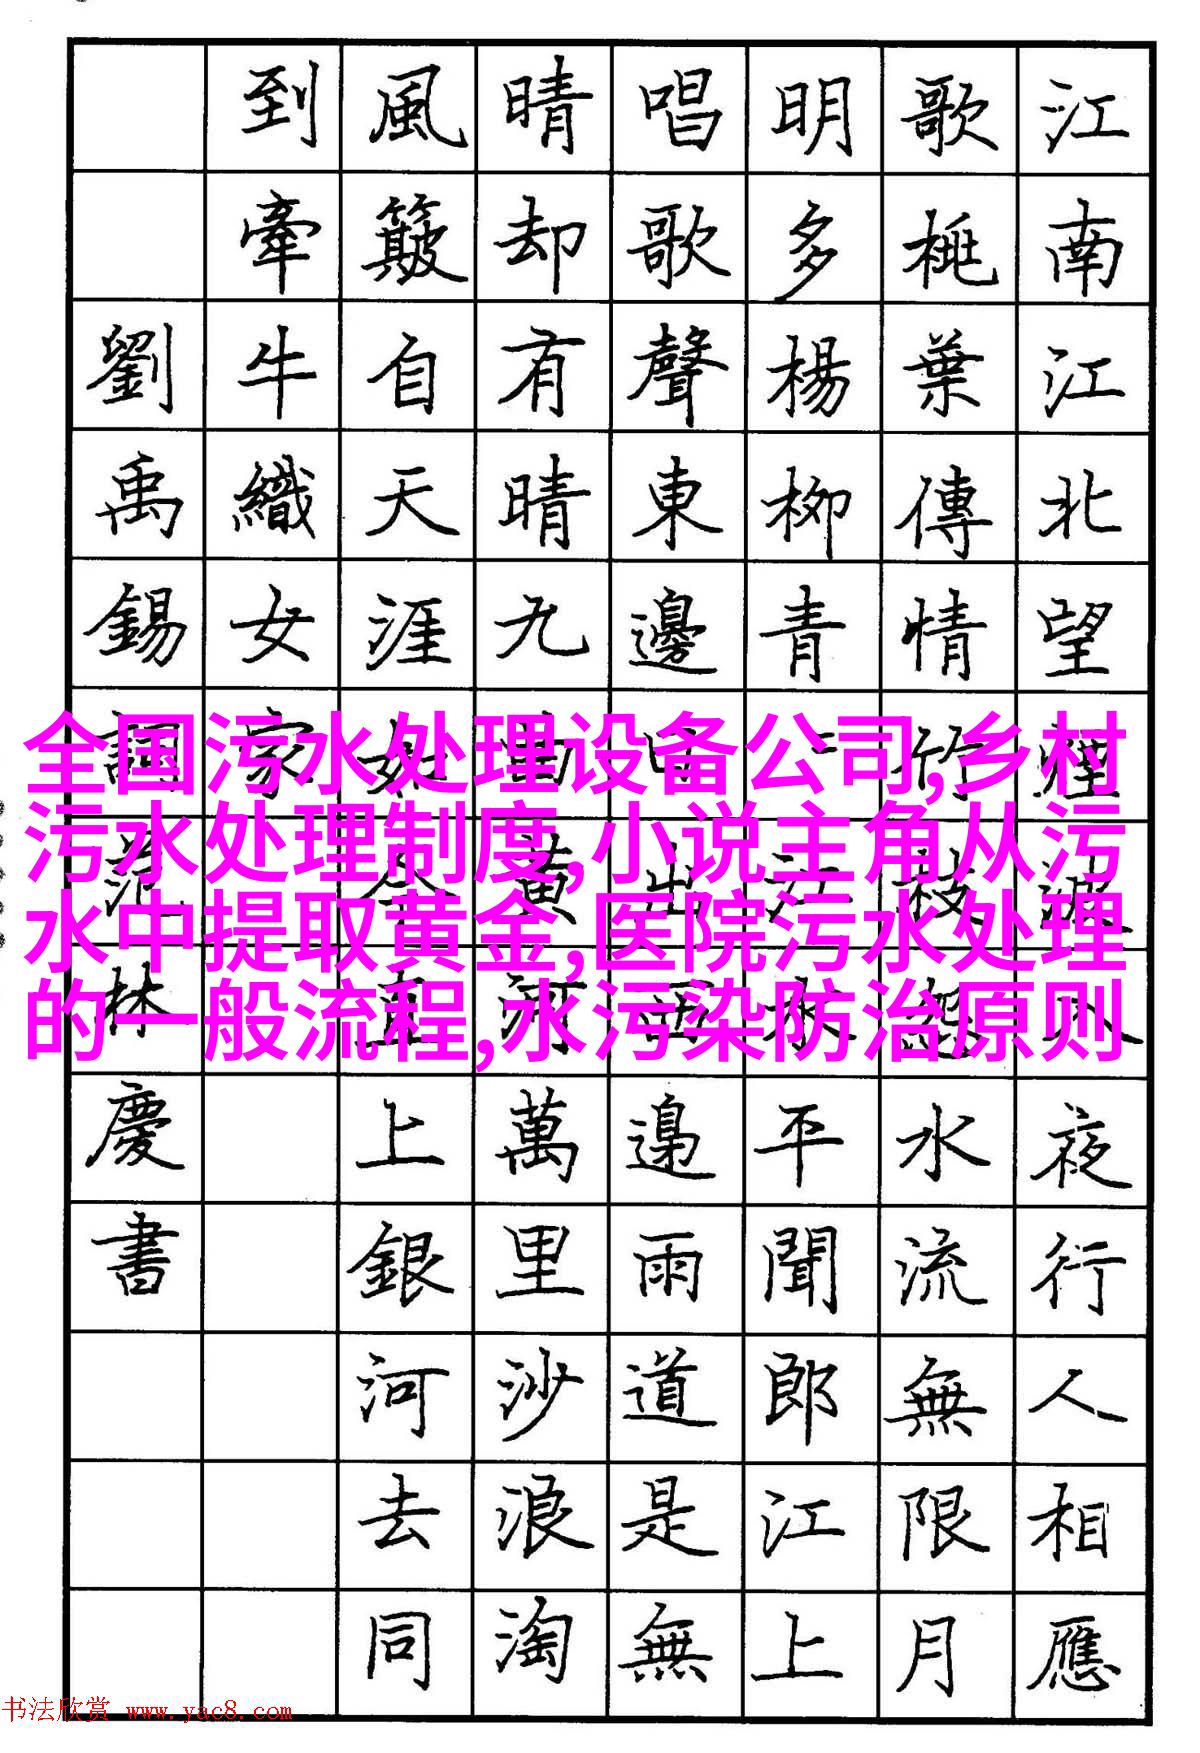 江南江北望煙波入夜行人相應
歌桃葉傳情竹枝怨水流無限月
明多楊柳青江水平聞郎江上
唱歌聲東邊日出西邊雨道是無
晴却有晴九黃河萬里沙浪淘
風簸自天涯如今直上銀河去同
到牽牛織女家
劉禹錫詞林慶書
全国污水处理设备公司,乡村
污水处理制度,小说主角从污
水中提取黄金,医院污水处理
的一般流程,水污染防治原则
书法欣赏 www.yac8.com